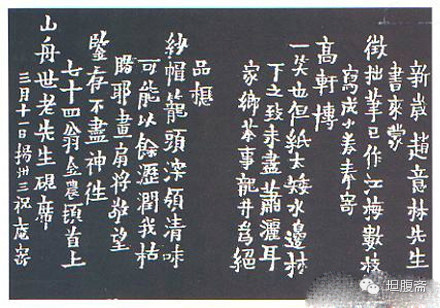 新歲趙意林先生
書來蒙
徵拙筆已作江梅數枝
寫成小卷奉寄
高軒博
一笑也但紙太矮水邊林
下之致未盡蕭灑耳
家鄉茶事龍井爲絕
品想
紗帽籠頭深領清味
可能以餘瀝潤我枯
腸耶畫扇將敬望
鑒存不盡神往
七十四翁金農頓首上
山舟世老先生硯席
三月十一日揚州三祝庵寄
坦腹斋